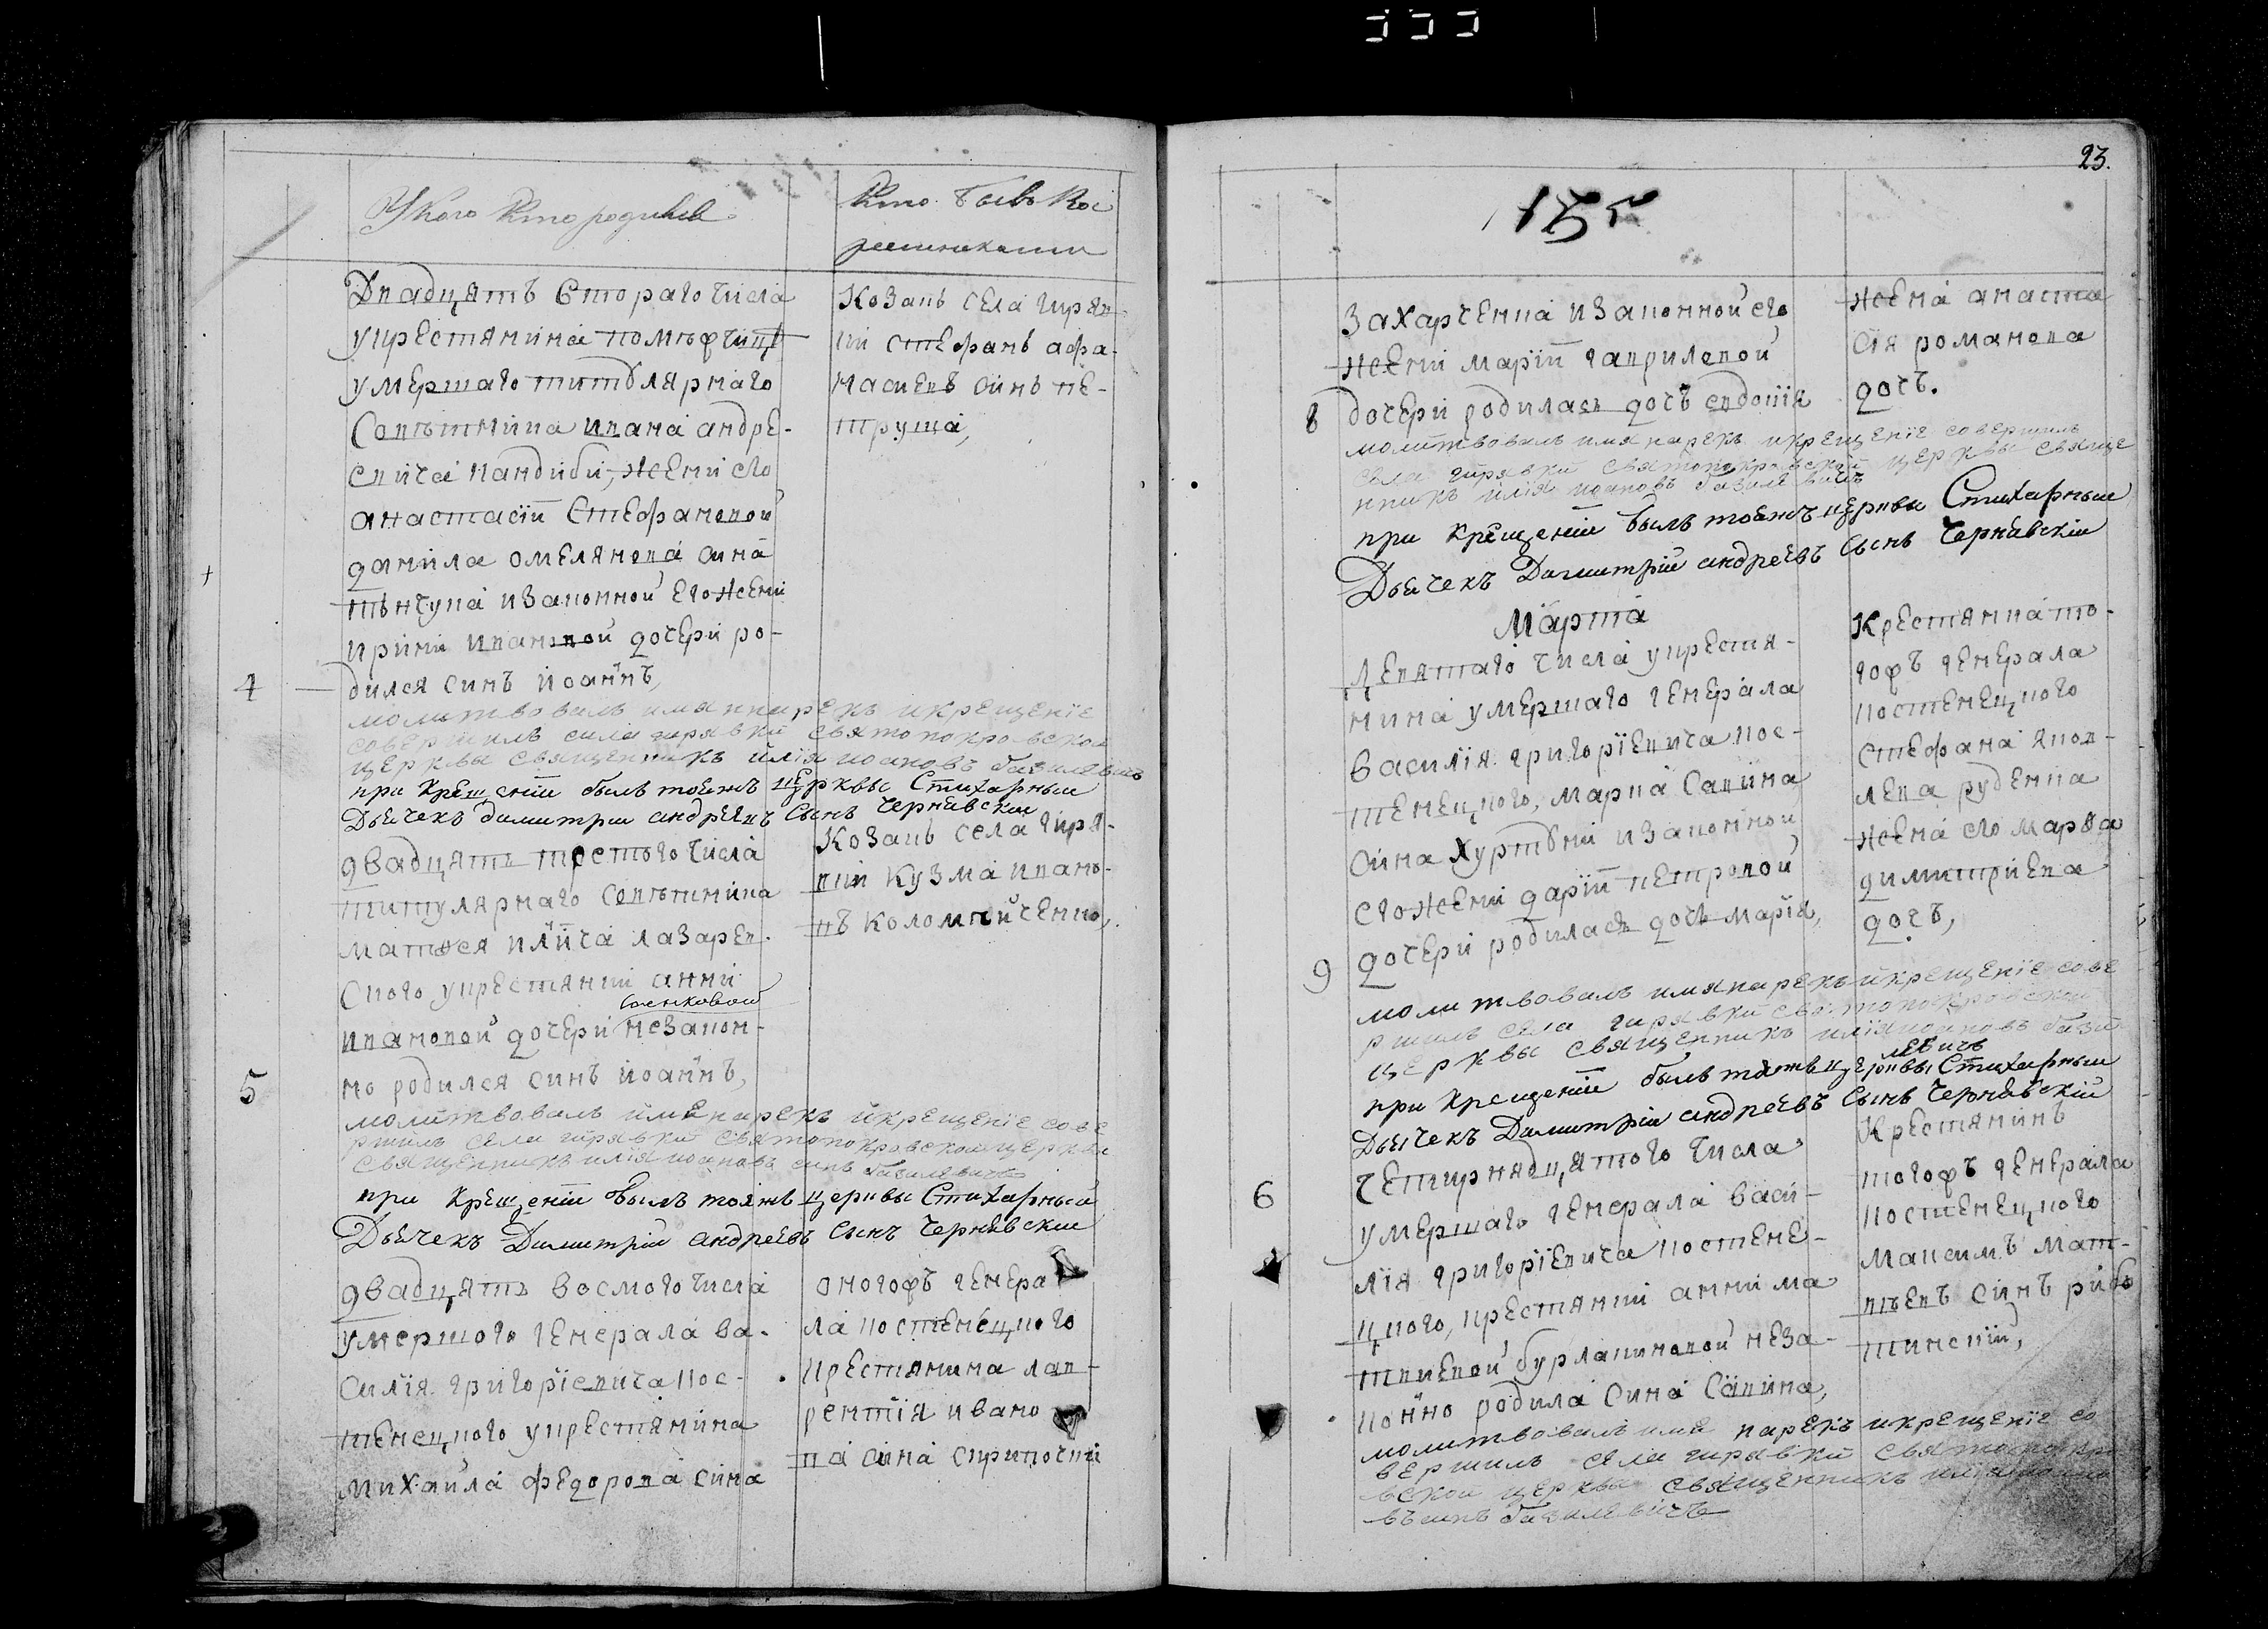 У кого кто родився
Кто бывъ вос
приемниками
Двадцять второго числа
у крестянина помѣщика
умершаго титулярнаго
Совѣтника ивана андре-
евича кандиби, жени его
анастасіи Стефановой
данила омелянова сина
тѣнчука изаконной его жени
ирини ивановой дочери ро-
4
дился синъ иоаннъ,
молитвовалъ имя нарекъ и крещеніе
совершилъ села гирявки святопокровской
церквы священникъ илія иоановъ базилевичъ
при крещеніи былъ тоежъ церквы Стихарный
Дьячекъ димитрій андреевъ Сынъ Чернявскій
Козакъ села гиряв-
кы стефанъ афа-
насиевъ синъ пе-
труша,
двадцять шестого числа
титулярнаго совѣтника
матвея иліича лазарев-
ского у крестянки анни
Сенковой
ивановой дочери незакон-
5
но родился синъ иоаннъ,
молитвовалъ имя нарекъ и крещеніе сове
ршилъ села гирявки святопокровской церквы
священникъ илія иоановъ синъ базилевичъ
при крещеніи былъ тояжъ церквы Стихарный
Дьячекъ Димитрій андреевъ Сынъ Чернявскій
Козакъ села гиря-
вки кузма ивано-
въ коломийченко,
двадцять восмого числа
умершого генерала ва-
силія григоріевича кос-
тенецкого у крестянина
михаила федорова сина
оногожъ генера
ла костенецкого
крестянина лав-
рентія ивано
ва сина скрипочки
23.
захарченка изаконной его
жени маріи гавриловой
8
дочери родилась дочь евдокія
молитвовалъ имя нарекъ и крещеніе совершилъ
села гирявки святопокровской церквы свяще
нникъ илія иоановъ базилевичъ
при крещеніи былъ тоежъ церквы Стихарный
Дьячекъ Димитрій андреевъ Сынъ Чернявскій
жена анаста
сія романова
дочъ.
Марта
Девятаго числа у крестя-
нина умершаго генерала
василія григоріевича кос-
тенецкого, марка Савина
сина хуртбни изаконной
его жени даріи петровой
9
дочери родилась дочь марія,
молитвовалъ имя нарекъ и крещеніе сове
ршилъ села гирявки святопокровской
церквы священникъ илія иоановъ бази
левичъ
при крещеніи былъ тояжъ церквы Стихарный
Дьячекъ Димитрій андреевъ Сынъ Чернявскій
Крестянка то-
гожъ генерала
костенецкого
стефана яков-
лева руденка
жена его марфа
димитріева
дочъ,
6
Четирнадцятого числа
умершаго генерала васи-
лія григоріевича костене-
цкого, крестянки анни ма
твиевой бурлакиновой неза-
конно родила сина Савина,
молитвовалъ имя нарекъ и крещеніе со
вершилъ села гирявки святопокро
вской церквы священникъ илія иоано
въ синъ базилевичъ
Крестянинъ
тогожъ генерала
костенецкого
максимъ мат-
вѣевъ синъ рибо
тинскій,